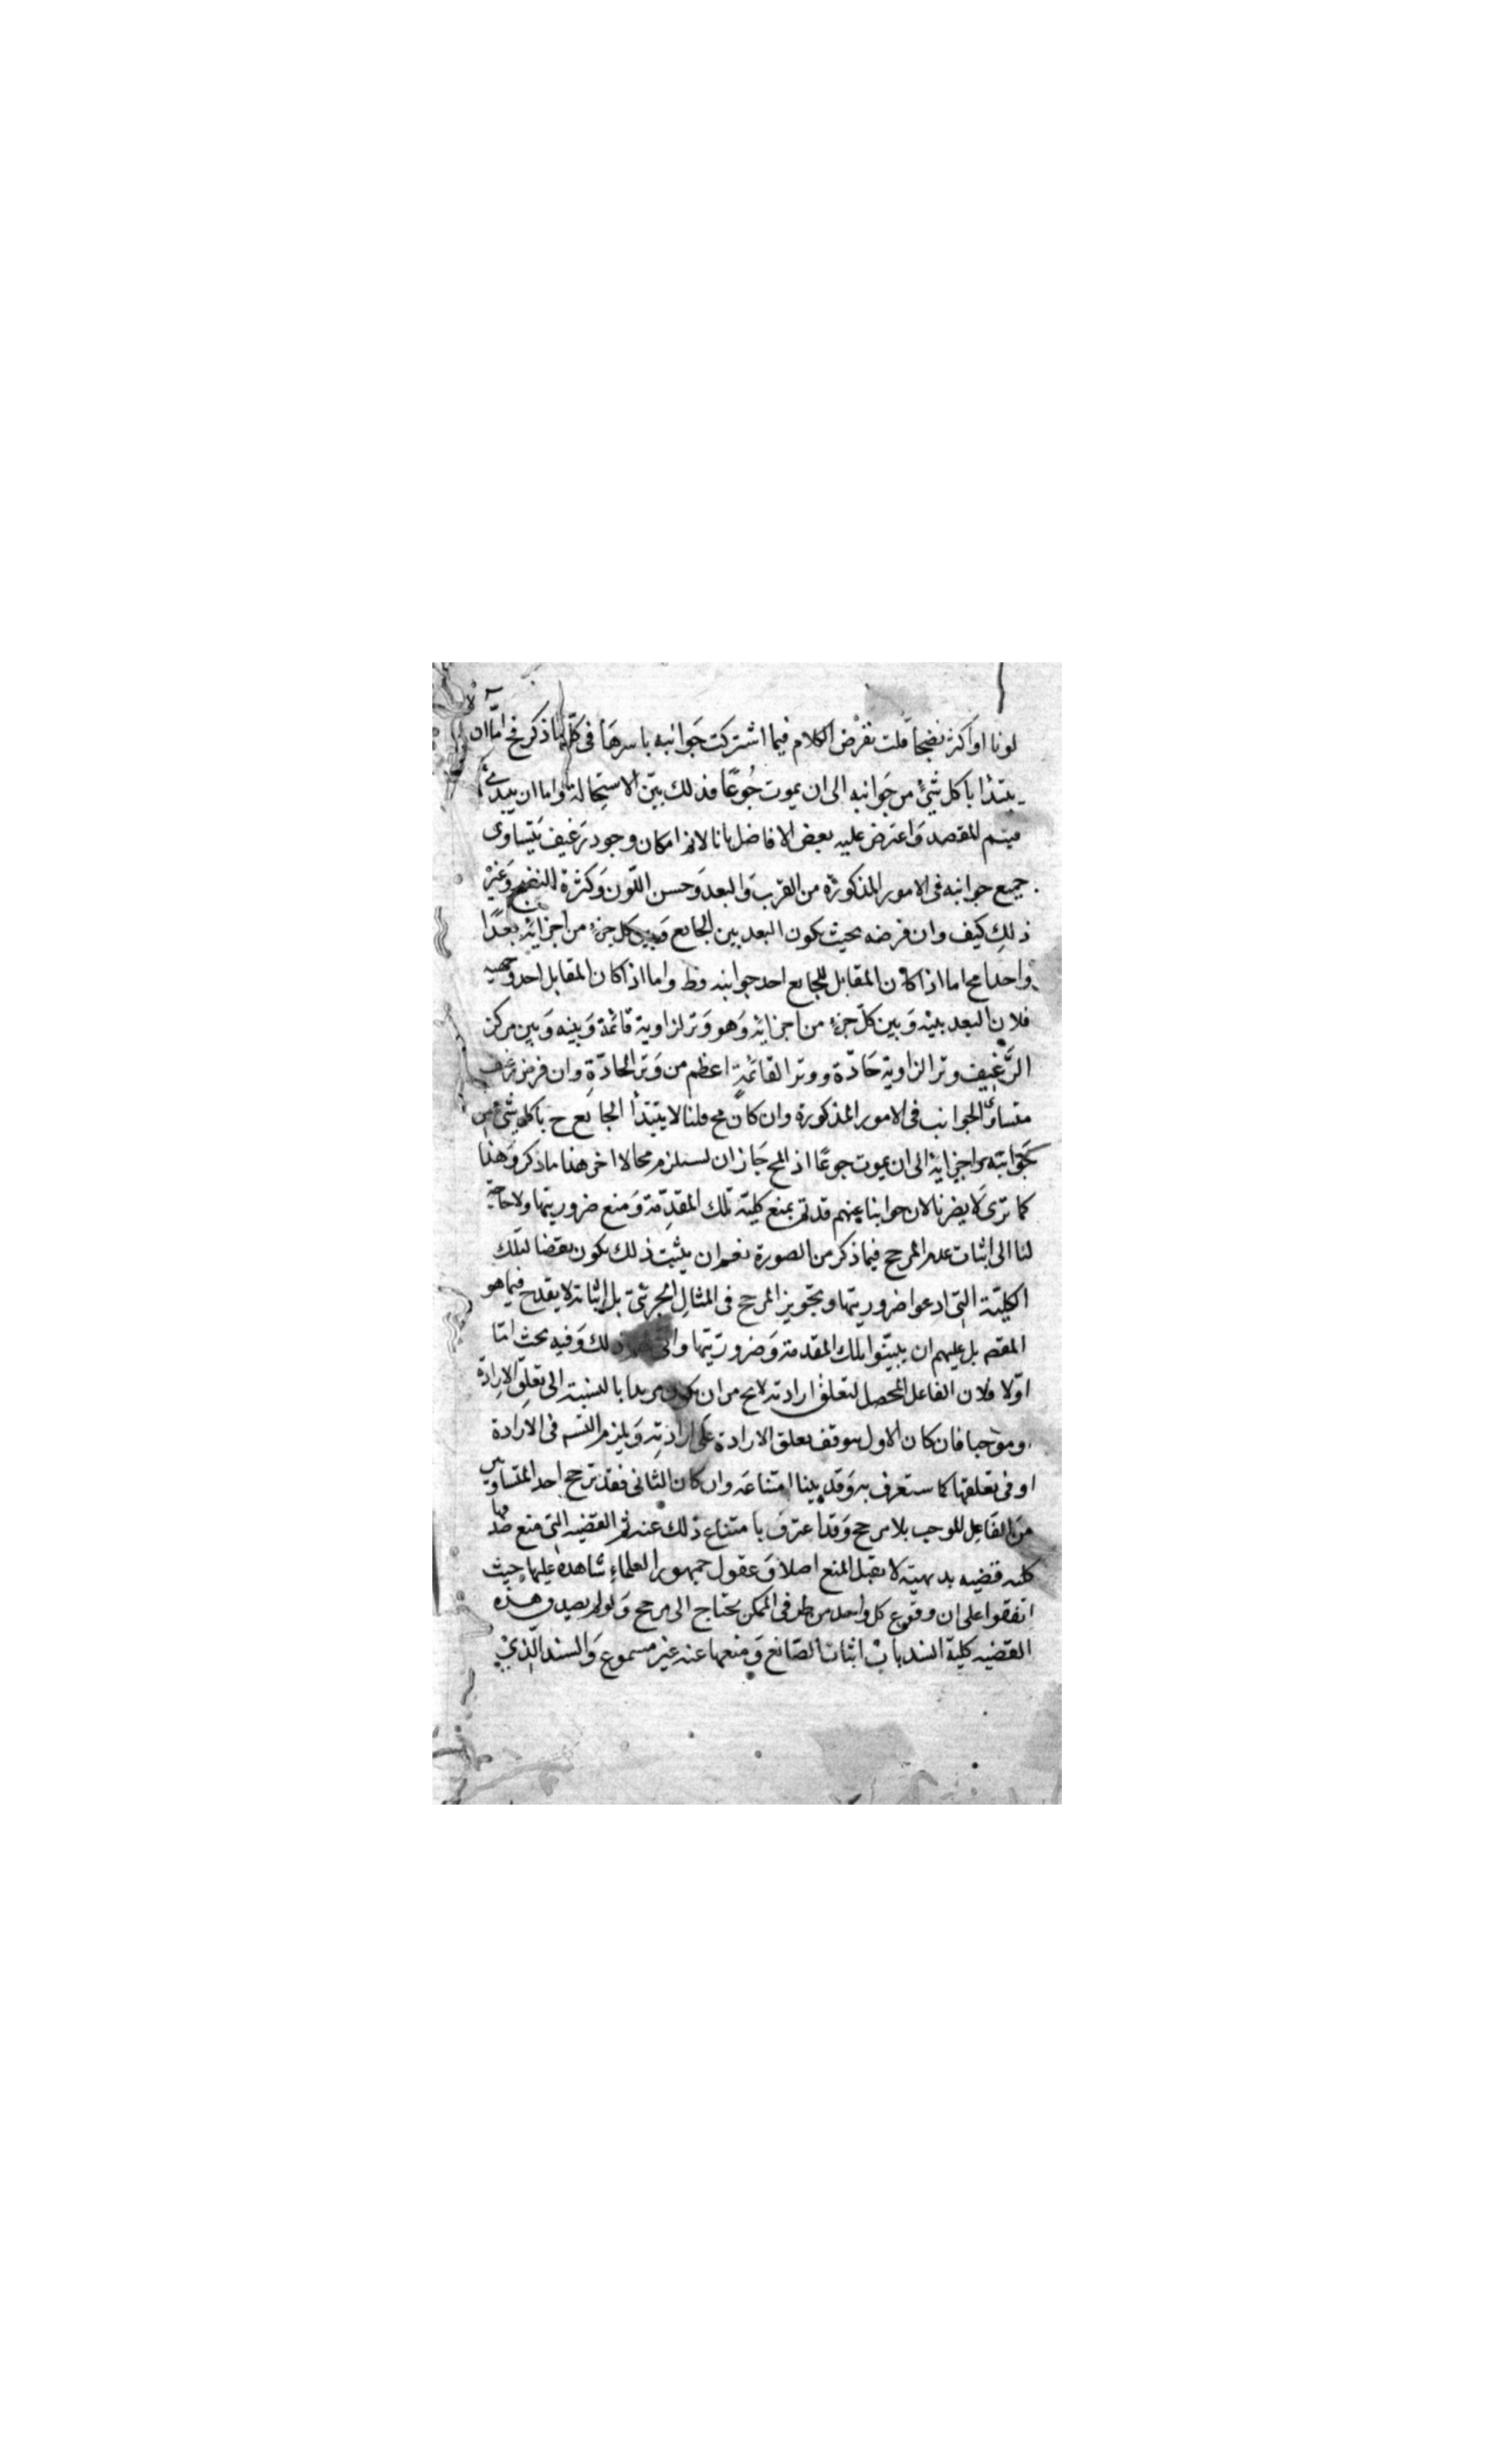 لونا او اكثر نضجا قلت نفرض الكلام فيما اشتركت جوانبه باسرها فى كل ما ذكر فح اما ان لا
يبتدأ باكل شئ من جوانبه الى ان يموت جوعًا فذلك بيّن الاستحالة واما ان يبتدئ
فيتم المقصد واعترض عليه بعض الافاضل بانا لانم امكان وجود رغيف يتساوى
جميع جوانبه فى الامور المذكورة من القرب والبعد وحسن اللون وكثرة النضج وغير
ذلك كيف وان فرضه بحيث يكون البعد بين الجايع وبين كل جزء من اجزائه بعدًا
واحدا مح اما اذا كان المقابل للجايع احد جوانبه فظ واما اذا كان المقابل احد وجهيه
فلان البعد بينه وبين كل جزء من اجزائه وهو وتر لزاوية قائمة وبينه وبين مركز
الرغيف وتر الزاوية حادّة ووتر القائمة اعظم من وتر الحادّة وان فرض رغيف
متساوى الجوانب فى الامور المذكورة وان كان مح قلنا لا يبتدأ الجايع ح باكل شئ من
جوانبه واجزايه الى ان يموت جوعًا اذ المح جاز ان يستلزم محالا اخر هذا ما ذكر وهذا
كما ترى لا يضرنا لان جوابنا عنهم قد تم بمنع كلية تلك المقدمة ومنع ضروريتها ولا حاجة
لنا الى اثبات عدم المرجح فيما ذكر من الصورة نعم ان يثبت ذلك يكون نقضا لتلك
الكلية التى ادعوا ضروريتها وتجويز المرجح فى المثال الجزئى بل اثباته لا يقدح فيما هو
المقصم بل عليهم ان يبينوا تلك المقدمة وضروريتها وانى لهم ذلك وفيه بحث امّا
اوّلا فلان الفاعل المحصل لتعلق ارادته لا يخ من ان يكون مريدا بالنسبة الى تعلق الارادة
او موجبا فان كان الاول يتوقف تعلق الارادة على ارادته ويلزم التسم فى الارادة
او فى تعلقها كما ستعرف به وقد بينا امتناعه وان كان الثانى فقد ترجح احد المتساويين
من الفاعل الموجب بلا مرجح وقد اعترف بامتناع ذلك عنه ثم القضيه التى منع صدقها
كليه قضيه بديهيّة لا يقبل المنع اصلا وعقول جمهور العلماء شاهدة عليها حيث
اتفقوا على ان وقوع كل واحد من طرفى الممكن يحتاج الى مرجح ولو لم يصدق هذه
القضيه كلية انسد باب اثبات الصانع ومنعها عنه غير مسموع والسند الذى